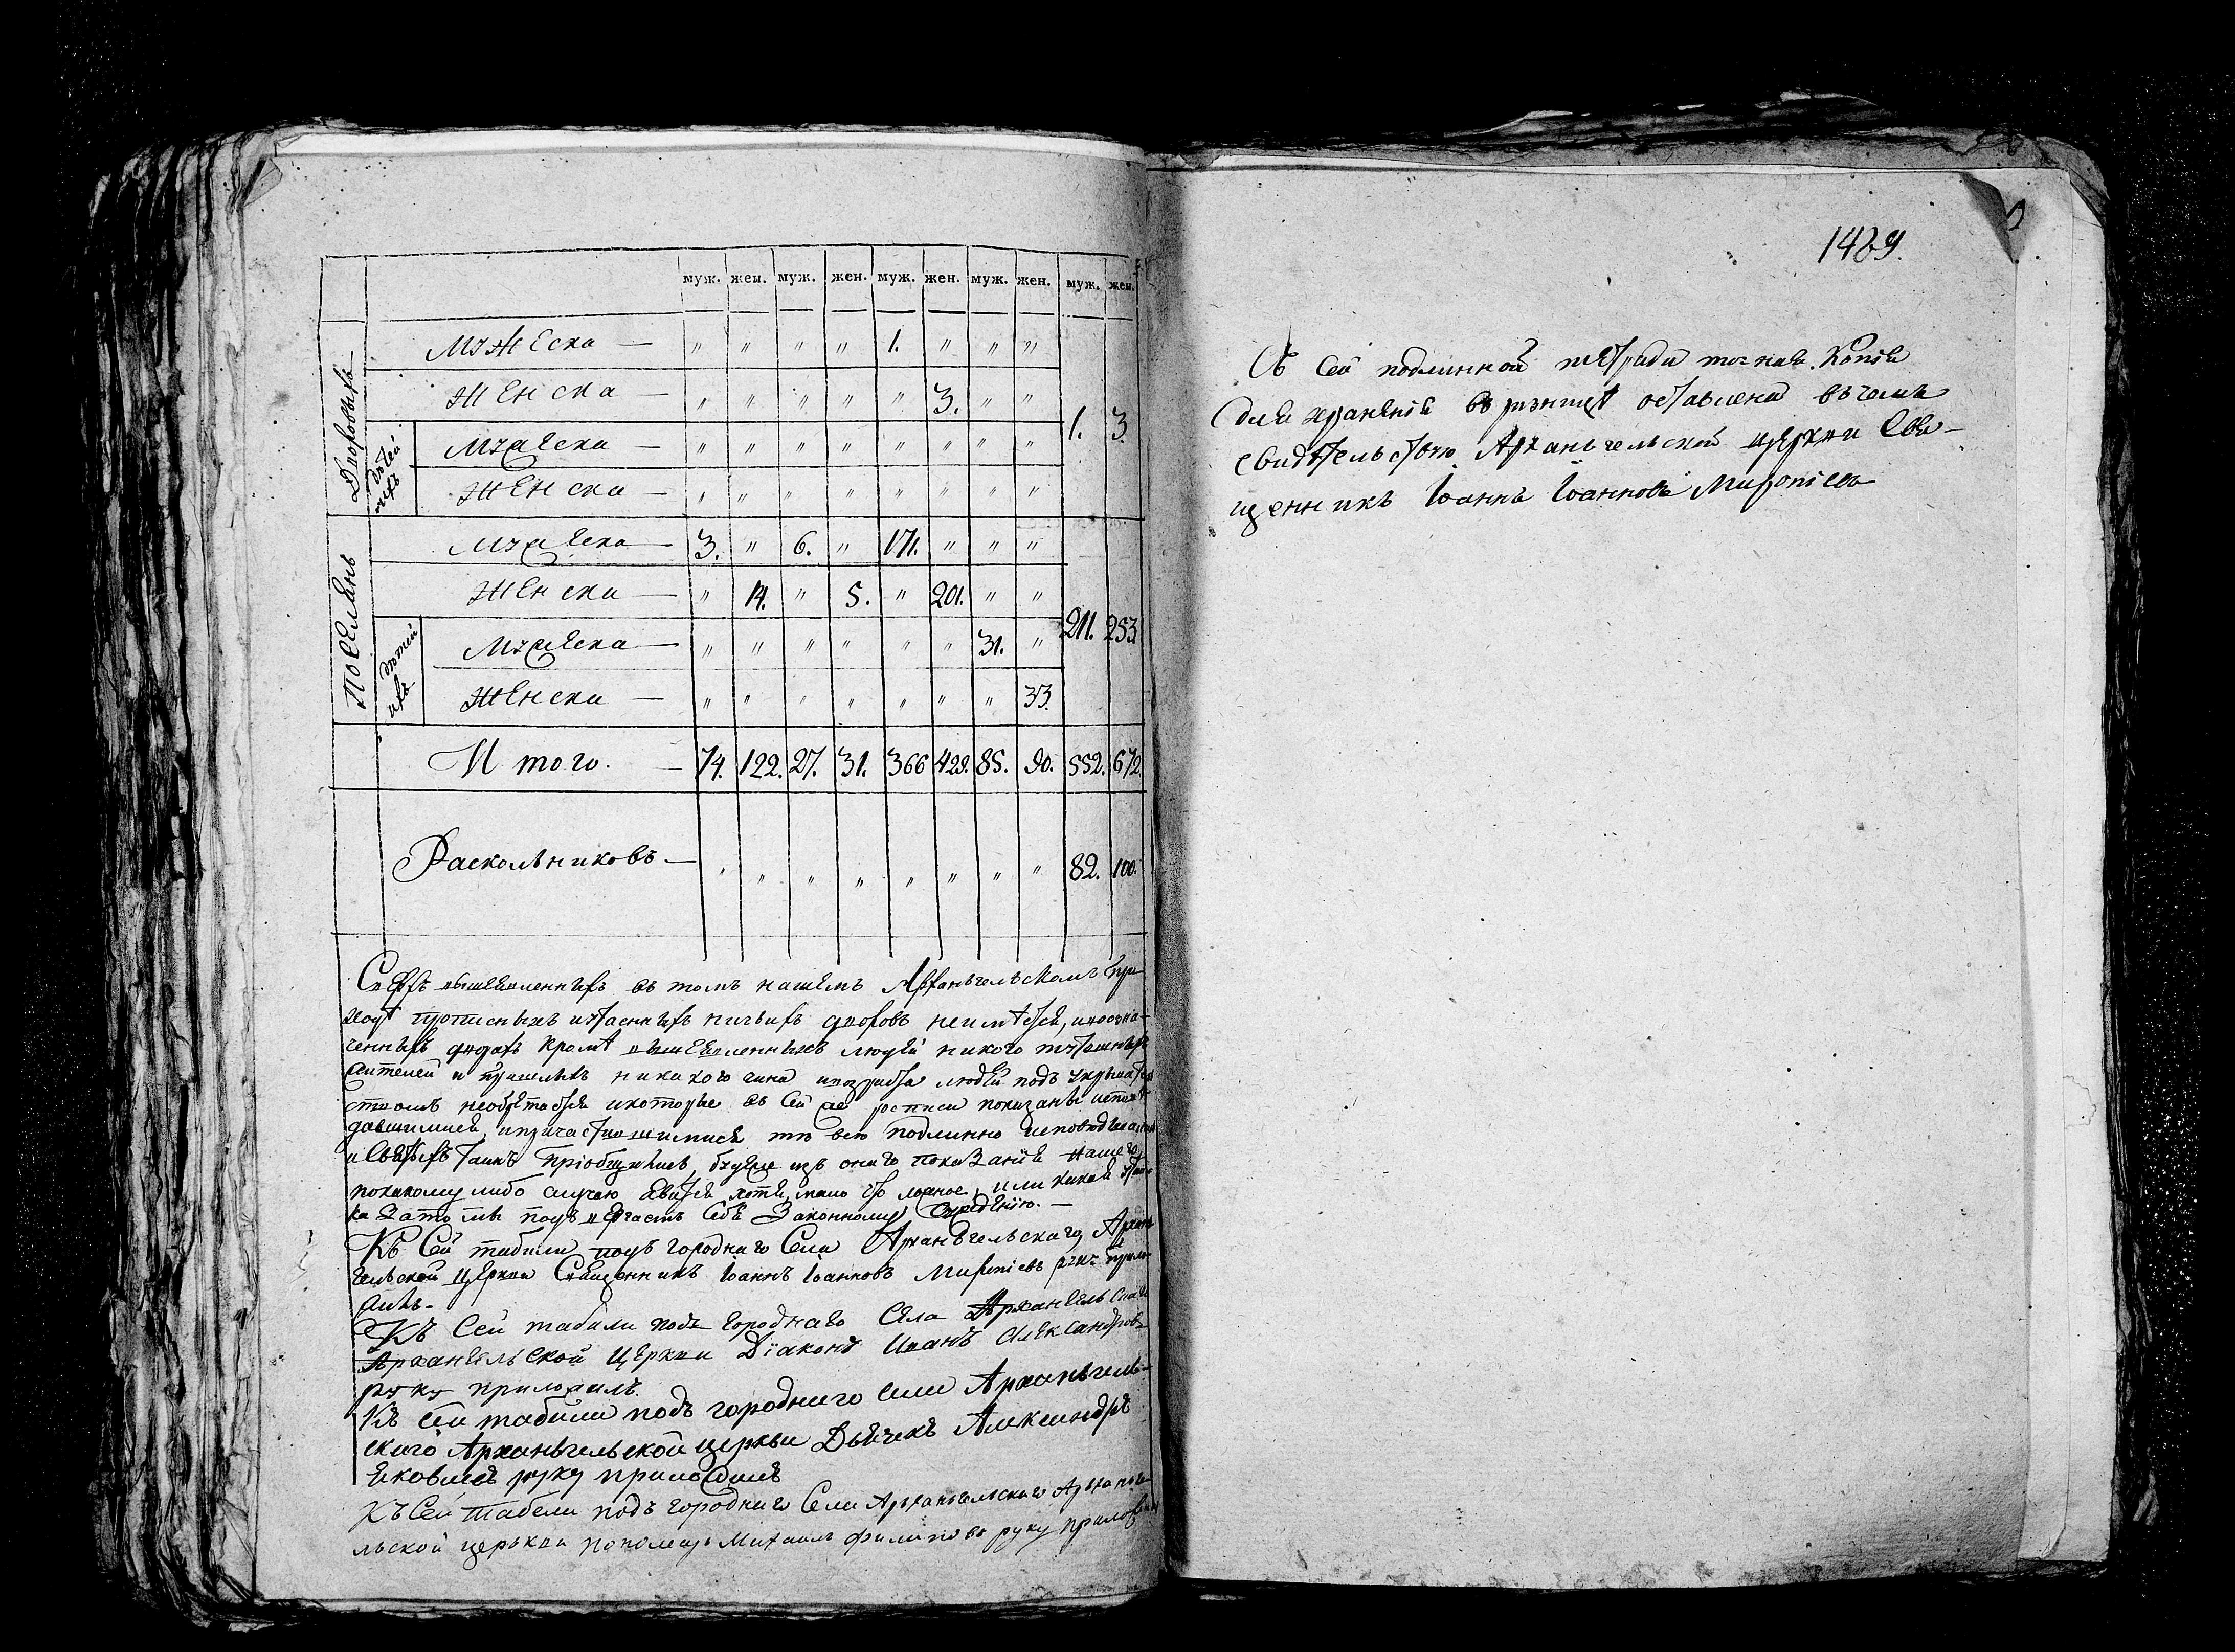 муж. жен. муж. жен. муж. жен. муж. жен. муж. жен.
Дворовыхъ
Мужеска — „ „ „ „ 1. „ „ „
Женска — „ „ „ „ „ 3. „ „
1. 3.
дѣтей ихъ
Мужеска — „ „ „ „ „ „ „ „
Женска — „ „ „ „ „ „ „ „
Поселянъ
Мужеска — 3. „ 6. „ 171. „ „ „
Женска — „ 14. „ 5. „ 201. „ „
211. 253.
дѣтей ихъ
Мужеска — „ „ „ „ „ „ 31. „
Женска — „ „ „ „ „ „ „ 33.
Итого. — 74. 122. 27. 31. 366 429. 85. 90. 552. 672.
Раскольниковъ — „ „ „ „ „ „ „ „ 82. 100.
Сверхъ вышеявленныхъ въ томъ нашемъ Архангельскомъ при-
ходѣ прописныхъ и утаенныхъ ничьихъ дворовъ неимѣется, и воозна-
ченныхъ дворахъ кромѣ вышеявленныхъ людей никого тутошныхъ
жителей и пришлыхъ никакого чина и возраста людей подъ укрыватель
ствомъ необрѣтается и которые въ сей же росписи показаны исповѣ-
давшимися, и причастившимися тѣ все подлинно исповѣдывались
и Святыхъ Таинъ пріобщились, будеже изъ онаго показанія нашего
покакому либо случаю явится хотя мало что ложное, или какая утай-
ка зато мы подвергаемъ себѣ Законному Сужденїю. —
Къ Сей табели подъ городнаго Села Архангельскаго Архан-
гельской Церкви Священникъ Іоаннъ Іоанновъ Миропіевъ руку прило-
жилъ.
Къ Сей табели подъ городнаго Села Архангельскаго
Архангельской Церкви Діаконъ Иванъ Александровъ
руку приложилъ.
Къ сей табели подъ городнаго села Архангель-
скаго Архангельской церкви Дьячекъ Александръ
Яковлевъ руку приложилъ
Къ Сей Табели подъ городнаго Села Архангельскаго Арханге-
льской церькви пономарь Михаилъ Филиповъ руку приложилъ
1489.
Съ сей подлинной тетради точная Копія
для храненія въ ризницѣ оставлена въ чемъ
свидѣтельствую Архангельской церкви Свя-
щенникъ Іоаннъ Іоанновъ Миропіевъ